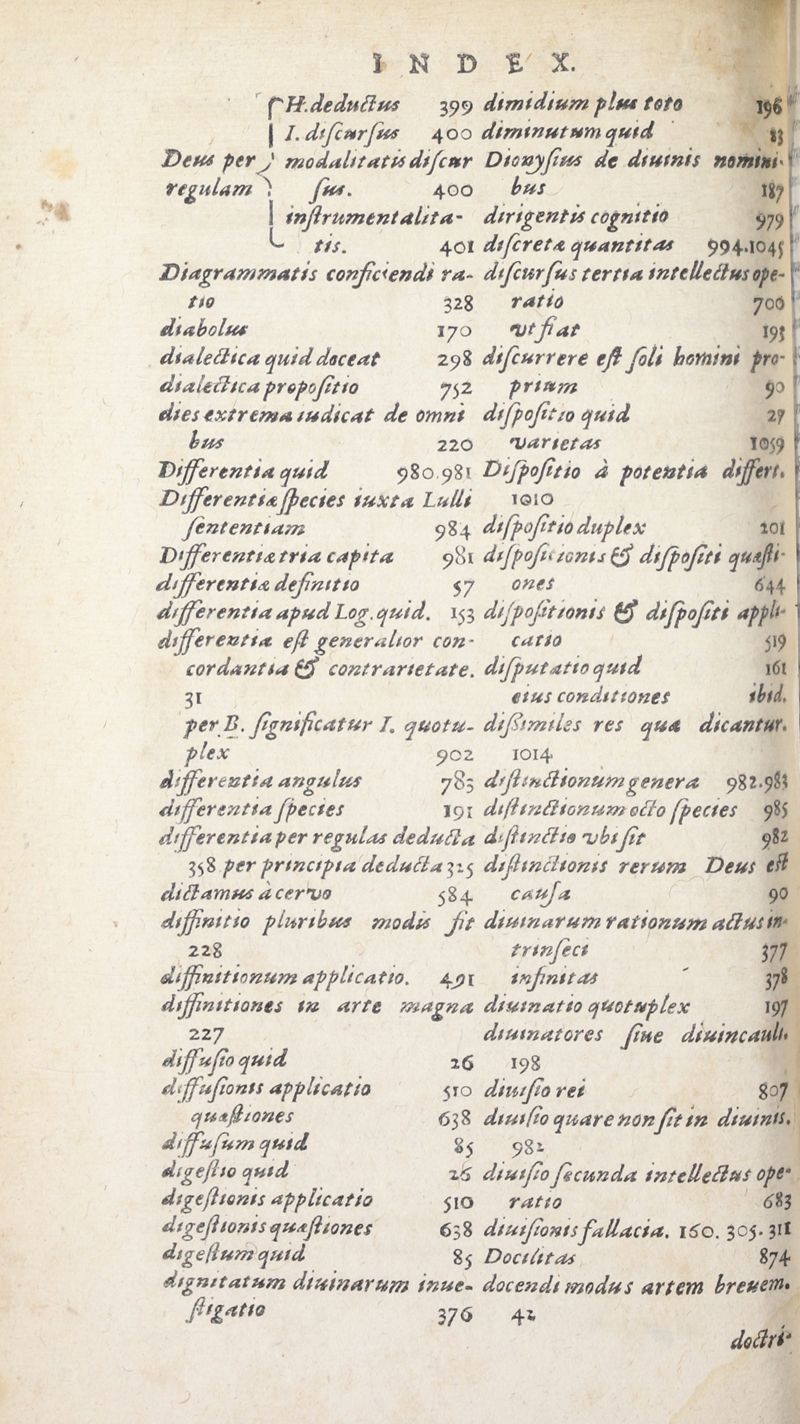 INDEX.
H. deductus 399
I. discursus 400
Deus per modalitatis discur
regulam sus. 400
instrumentalita-
tis. 401
Diagrammatis conficiendi ra-
tio 328
diabolus 170
dialectica quid doceat 298
dialectica propositio 752
dies extrema iudicat de omni
bus 220
Differentia quid 980.981
Differentiæ species iuxta Lulli
sententiam 984
Differentiæ tria capita 981
differentiæ definitio 57
differentia apud Log. quid. 153
differentia est generalior con-
cordantia & contrarietate.
31
per B. significatur I. quotu-
plex 902
differentia angulus 785
differentia species 191
differentia per regulas deducta
358 per principia deducta 325
dictamus à cervo 584
diffinitio pluribus modis fit
228
diffinitionum applicatio. 491
diffinitiones in arte magna
227
diffusio quid 26
diffusionis applicatio 510
quæstiones 638
diffusum quid 85
digestio quid 26
digestionis applicatio 510
digestionis quæstiones 638
digestum quid 85
dignitatum diuinarum inue-
stigatio 376
dimidium plus toto 196
diminutum quid 83
Dionysius de diuinis nomini-
bus 187
dirigentis cognitio 979
discreta quantitas 994.1045
discursus tertia intellectus ope-
ratio 700
vt fiat 195
discurrere est soli homini pro-
prium 90
dispositio quid 27
varietas 1059
Dispositio à potentia differt.
1010
dispositio duplex 101
dispositionis & dispositi quæsti-
ones 644
dispositionis & dispositi appli-
catio 519
disputatio quid 161
eius conditiones ibid.
dissimiles res qua dicantur.
1014
distinctionum genera 982.983
distinctionum octo species 985
distinctio vbi fit 982
distinctionis rerum Deus est
causa 90
diuinarum rationum actus in-
trinseci 377
infinitas 378
diuinatio quotuplex 197
diuinatores siue diuincauli.
198
diuisio rei 807
diuisio quare non sit in diuinis.
982
diuisio secunda intellectus ope-
ratio 683
diuisionis fallacia. 160. 305. 311
Docilitas 874
docendi modus artem breuem.
42
doctri-